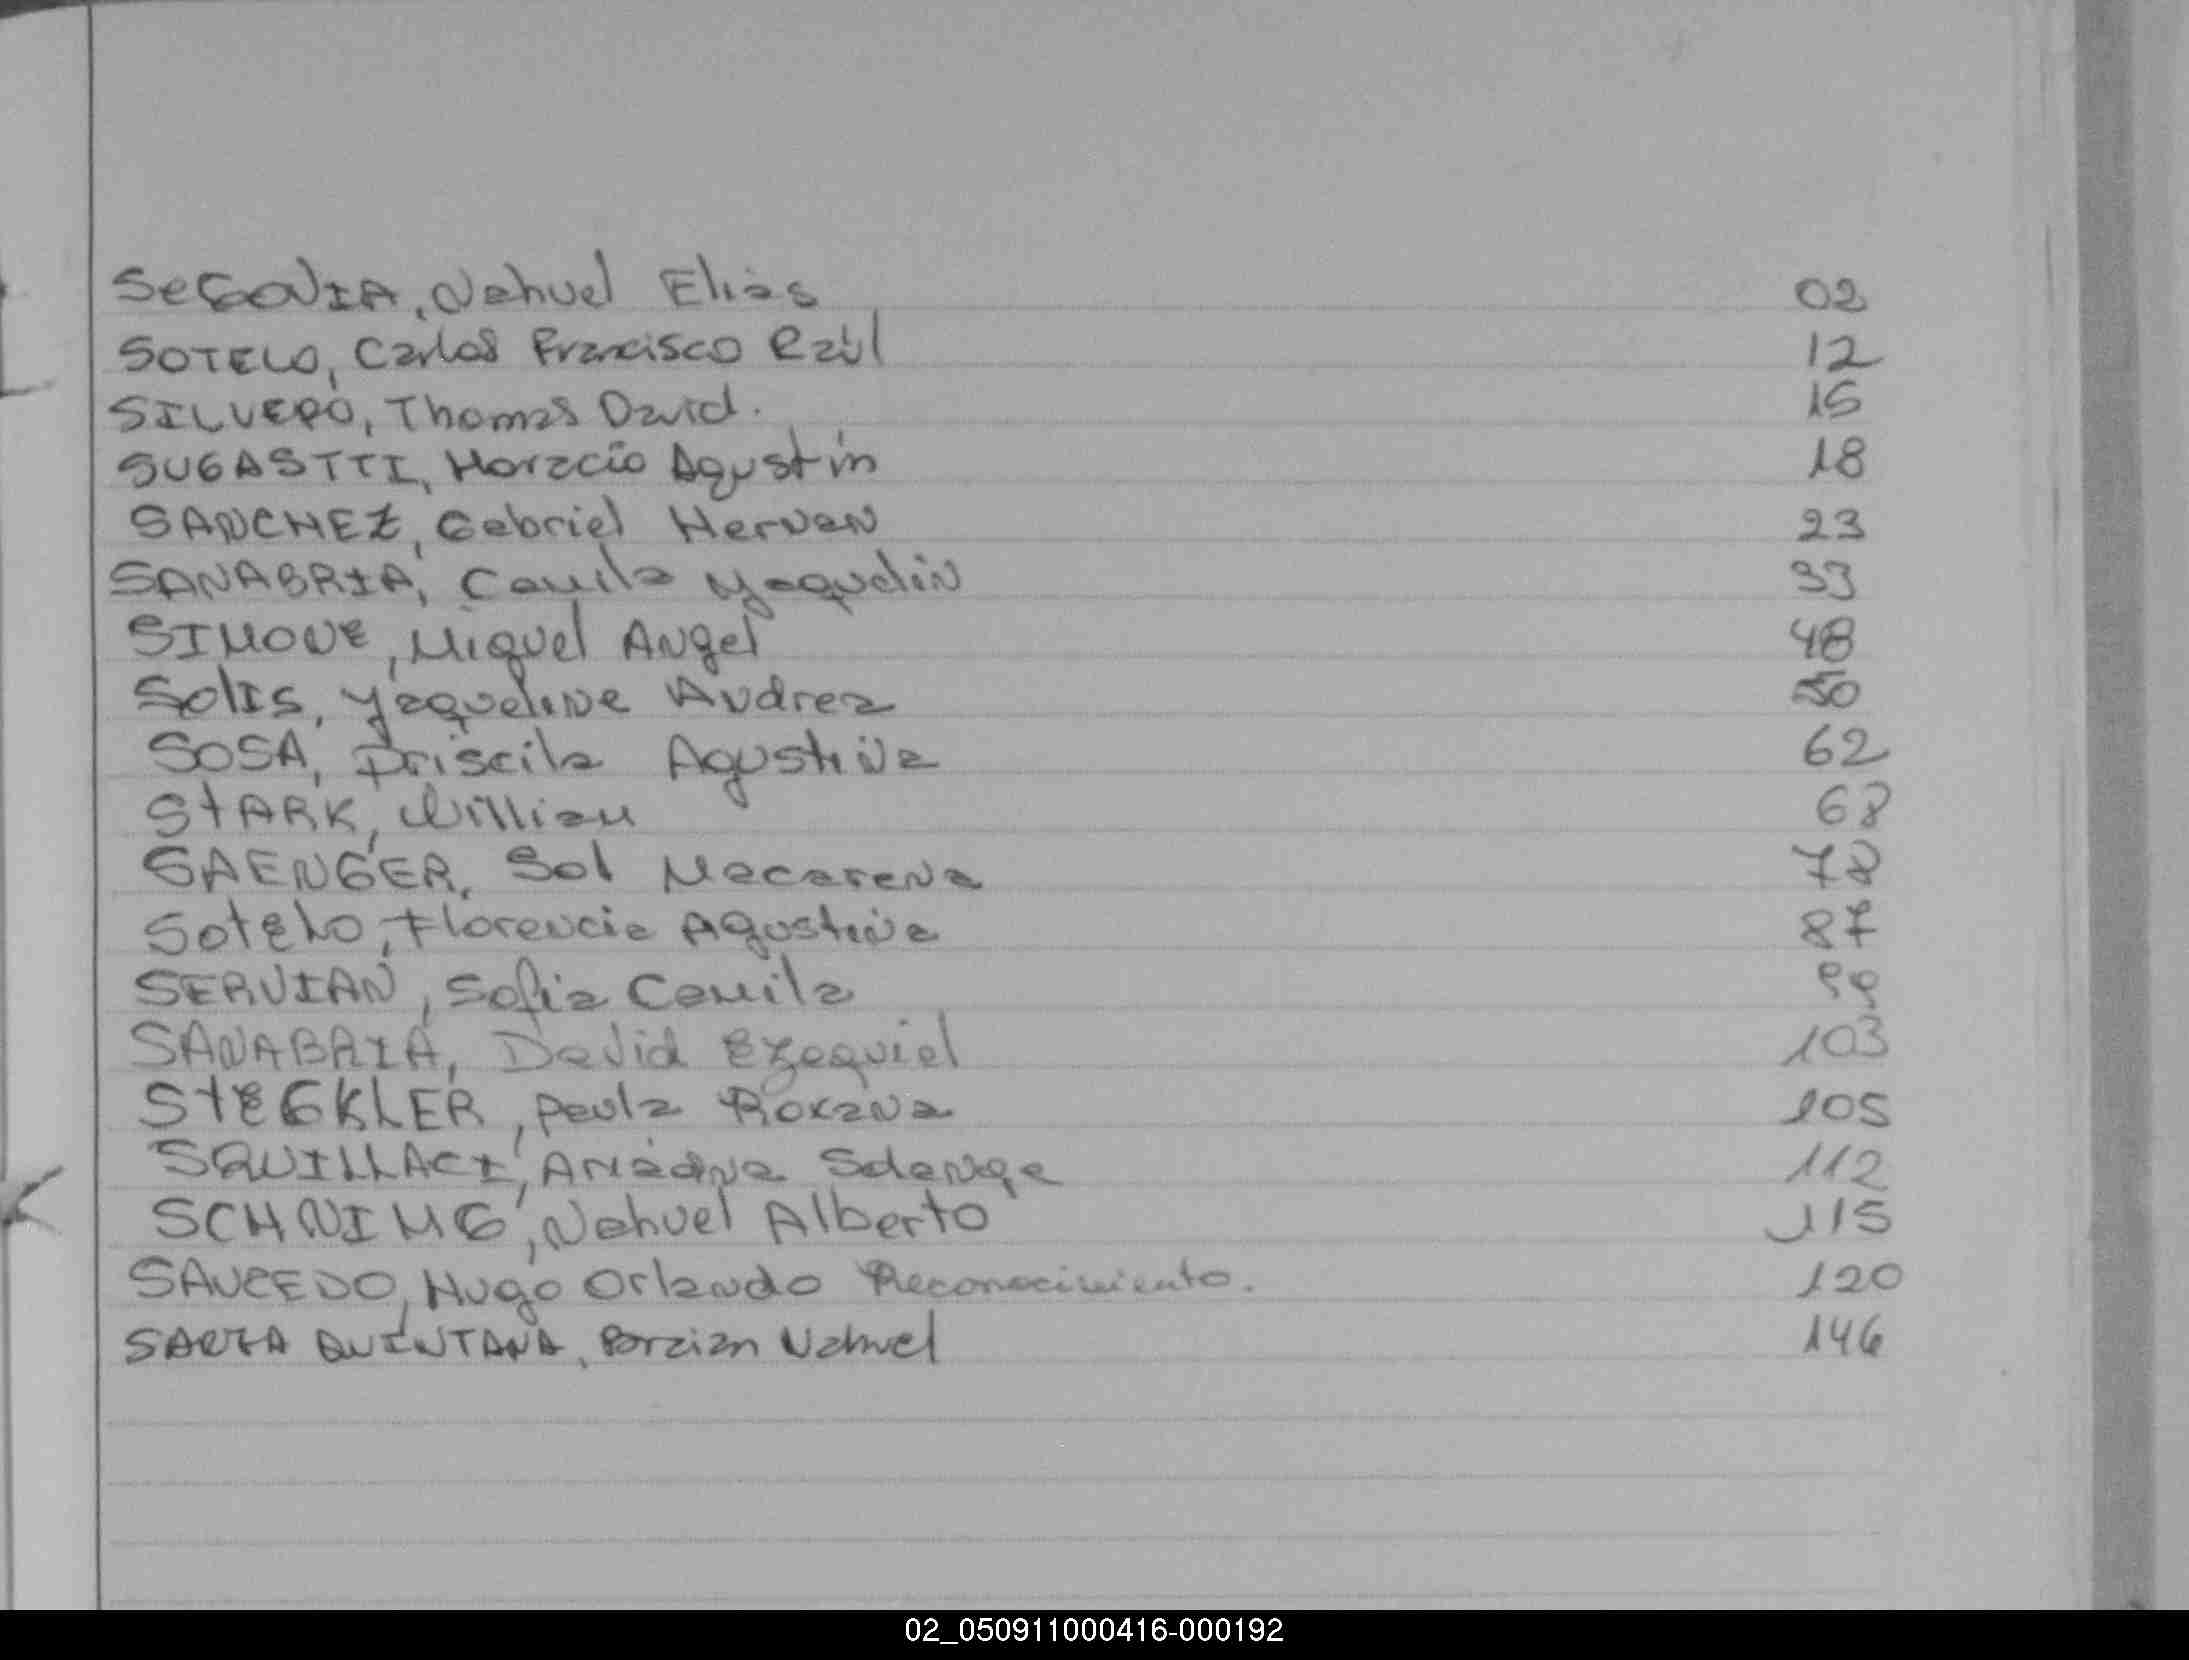 SEGOVIA, Nahuel Elias 02
SOTELO, Carlos Francisco Raúl 12
SILVERO, Thomas David. 15
SUGASTTI, Horacio Agustín 18
SANCHEZ, Gabriel Hernan 23
SANABRIA, Camila Yaquelin 33
SIMONE, Miguel Angel 48
SolIs, Yaqueline Andrea 50
SOSA, Priscila Agustina 62
StARK, William 68
SAENGER, Sol Macarena 78
SotELO, Florencia Agustina 87
SERVIAN, Sofia Camila 99
SANABRIA, David Ezequiel 103
StEGKLER, Paula Roxana 105
SQUILLACI, Ariadna Solange 112
SCHNIMG, Nahuel Alberto 115
SAUCEDO, Hugo Orlando Reconocimiento. 120
QUINTANA, Nahuel 146
02_050911000416-000192